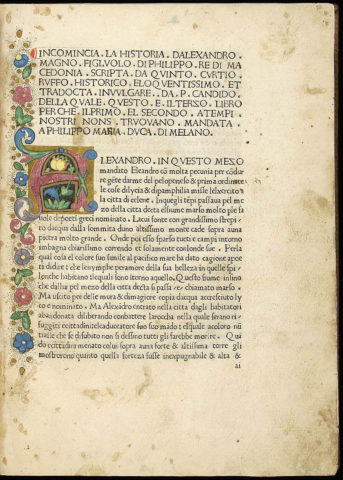 INCOMINCIA . LA HISTORIA . DALEXANDRO .
MAGNO . FIGLVOLO . DI PHILIPPO . RE DI MA
CEDONIA . SCRIPTA . DA QVINTO . CVRTIO .
RVFFO . HISTORICO . ELOQVENTISSIMO . ET
TRADOCTA . INVVLGARE . DA . P . CANDIDO
DELLA QVALE . QVESTO . E . ILTERZO . LIBRO
PERCHE . ILPRIMO . EL SECONDO . A TEMPI .
NOSTRI NONS . TRVOVANO . MANDATA .
A PHILIPPO MARIA . DVCA . DI MELANO .
ALEXANDRO . IN QVESTO MEZO
mandato Eleandro cō molta pecunia per cōdur
re gēte darme del peloponso & prima ordinate
le cose dilycia & dipamphilia misse lexercito in
la citta di celene . Inquegli tēpi passaua pel me
zo della citta decta elfiume marso molto pie fa
uole depoeti greci nominato . Lacui fonte con grandissimo strepi
to dacqua dalla sommita duno altissimo monte cade sopra una
pietra molto grande . Onde poi esso sparso tutti e campi intorno
imbagna chiarissimo correndo et solamente londe sue . Perla
qual cosa el colore suo simile al pacifico mare ha dato cagione apoe
ti didire : che lenymphe peramore della sua belleza in quelle spi
lonche habitano dequali sono itorno aquello . Questo fiume infino
che dallui pel mezo della citta decta si passa e chiamato marso .
Ma uscito poi delle mura & dimagiore copia dacqua accresciuto ly
co e nominato . Ma Alexādro entrato nella citta dagli habitatori
abandonata diliberando combattere larocha nella quale serano ri
fuggiti e cittadini
tratle che se disubito non si dessino tutti gli farebbe morire . Qui
do e cittadini menato colui sopra auna forte & altissima torre gli
mostrorono quanto quella forteza fusse inexpugnabile & alta &
ai